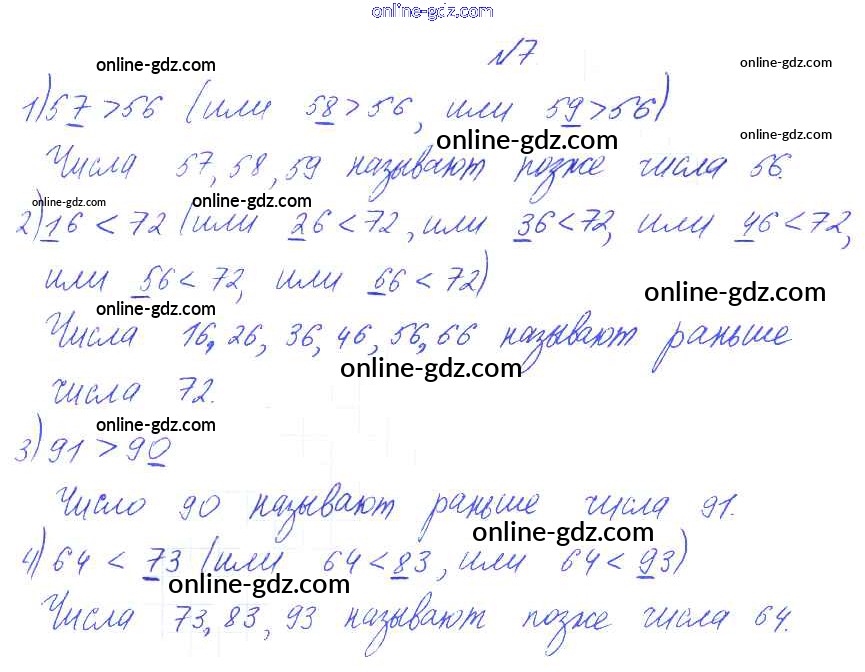 online-gdz.com
№7
online-gdz.com online-gdz.com
1) 57 > 56 (или 58 > 56, или 59 > 56)
online-gdz.com online-gdz.com
Числа 57, 58, 59 называют позже числа 56.
online-gdz.com online-gdz.com
2) 16 < 72 (или 26 < 72, или 36 < 72, или 46 < 72,
или 56 < 72, или 66 < 72)
online-gdz.com
online-gdz.com
Числа 16, 26, 36, 46, 56, 66 называют раньше
online-gdz.com
числа 72.
online-gdz.com
3) 91 > 90
Число 90 называют раньше числа 91.
online-gdz.com
4) 64 < 73 (или 64 < 83, или 64 < 93)
online-gdz.com
Числа 73, 83, 93 называют позже числа 64.